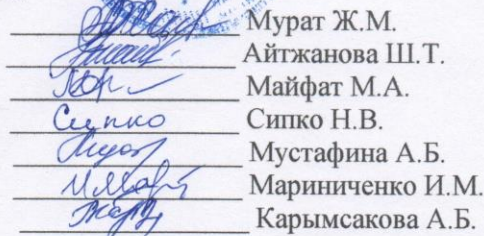 Мурат Ж.М.
Айтжанова Ш.Т.
Майфат М.А.
Сипко Сипко Н.В.
Мустафина А.Б.
Мариниченко И.М.
Карымсакова А.Б.